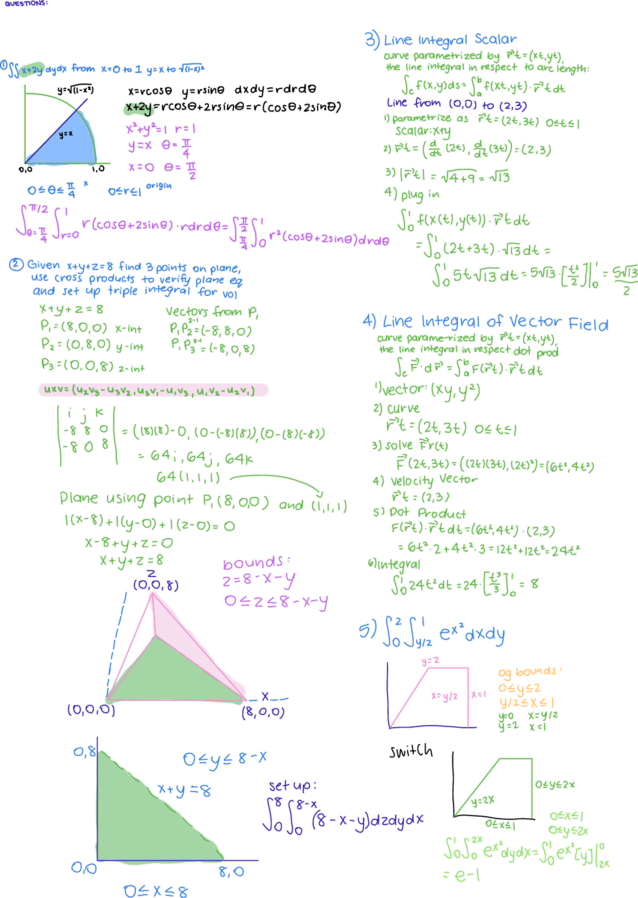 QUESTIONS:
① ∬ x+2y dydx from x=0 to 1 y=x to √(1-x)²
y=√(1-x²)
y=x
0,0
1,0
0≤θ≤π/4 x
0≤r≤1 origin
x=rcosθ y=rsinθ dxdy=rdrdθ
x+2y=rcosθ+2rsinθ=r(cosθ+2sinθ)
x²+y²=1 r=1
y=x θ=π/4
x=0 θ=π/2
∫_{θ=π/4}^{π/2} ∫_{r=0}^{1} r(cosθ+2sinθ)·rdrdθ = ∫_{π/4}^{π/2} ∫_0^1 r²(cosθ+2sinθ)drdθ
② Given x+y+z=8 find 3 points on plane,
use cross products to verify plane eq
and set up triple integral for vol
x+y+z=8
P₁=(8,0,0) x-int
P₂=(0,8,0) y-int
P₃=(0,0,8) z-int
Vectors from P₁
2-1
P₁P₂=(-8,8,0)
3-1
P₁P₃=(-8,0,8)
uxv=(u₂v₃-u₃v₂, u₃v₁-u₁v₃, u₁v₂-u₂v₁)
i j k
-8 8 0
-8 0 8
=((8)(8)-0,(0-(-8)(8)),(0-(8)(-8))
= 64i, 64j, 64k
64(1,1,1)
Plane using point P₁(8,0,0) and (1,1,1)
1(x-8)+1(y-0)+1(z-0)=0
x-8+y+z=0
x+y+z=8
bounds:
z=8-x-y
0≤z≤8-x-y
z
(0,0,8)
x
(0,0,0)
(8,0,0)
0,8
0≤y≤8-x
x+y=8
0,0
8,0
0≤x≤8
set up:
∫_0^8 ∫_0^{8-x} (8-x-y)dzdydx
3) Line Integral Scalar
curve parametrized by r⃗'t=(xt,yt),
the line integral in respect to arc length:
∫_c f(x,y)ds=∫_a^b f(xt,yt)·r⃗'t dt
Line from (0,0) to (2,3)
1) parametrize as r⃗'t=(2t,3t) 0≤t≤1
scalar: x+y
2) r⃗'t=(d/dt (2t), d/dt (3t))=(2,3)
3) |r⃗'t| = √4+9 = √13
4) plug in
∫_0^1 f(x(t),y(t))·r⃗'t dt
=∫_0^1 (2t+3t)·√13 dt =
∫_0^1 5t√13 dt = 5√13·[t²/2]|_0^1 = 5√13/2
4) Line Integral of Vector Field
curve parametrized by r⃗'t=(xt,yt),
the line integral in respect dot prod
∫_c F⃗·dr⃗=∫_a^b F(r⃗t)·r⃗'t dt
1) vector: (xy,y²)
2) curve
r⃗'t=(2t,3t) 0≤t≤1
3) solve F⃗r(t)
F⃗(2t,3t)=((2t)(3t),(2t)²)=(6t²,4t²)
4) velocity vector
r⃗'t=(2,3)
5) Dot Product
F(r⃗t)·r⃗'t dt=(6t²,4t²)·(2,3)
= 6t²·2+4t²·3=12t²+12t²=24t²
6) integral
∫_0^1 24t²dt=24·[t³/3]_0^1 = 8
5) ∫_0^2 ∫_{y/2}^1 e^{x²}dxdy
y=2
x=y/2
x=1
og bounds:
0≤y≤2
y/2≤x≤1
y=0 x=y/2
y=2 x=1
switch
y=2x
0≤x≤1
0≤y≤2x
0≤x≤1
0≤y≤2x
∫_0^1 ∫_0^{2x} e^{x²}dydx=∫_0^1 e^{x²}[y]|_{2x}^0
= e-1